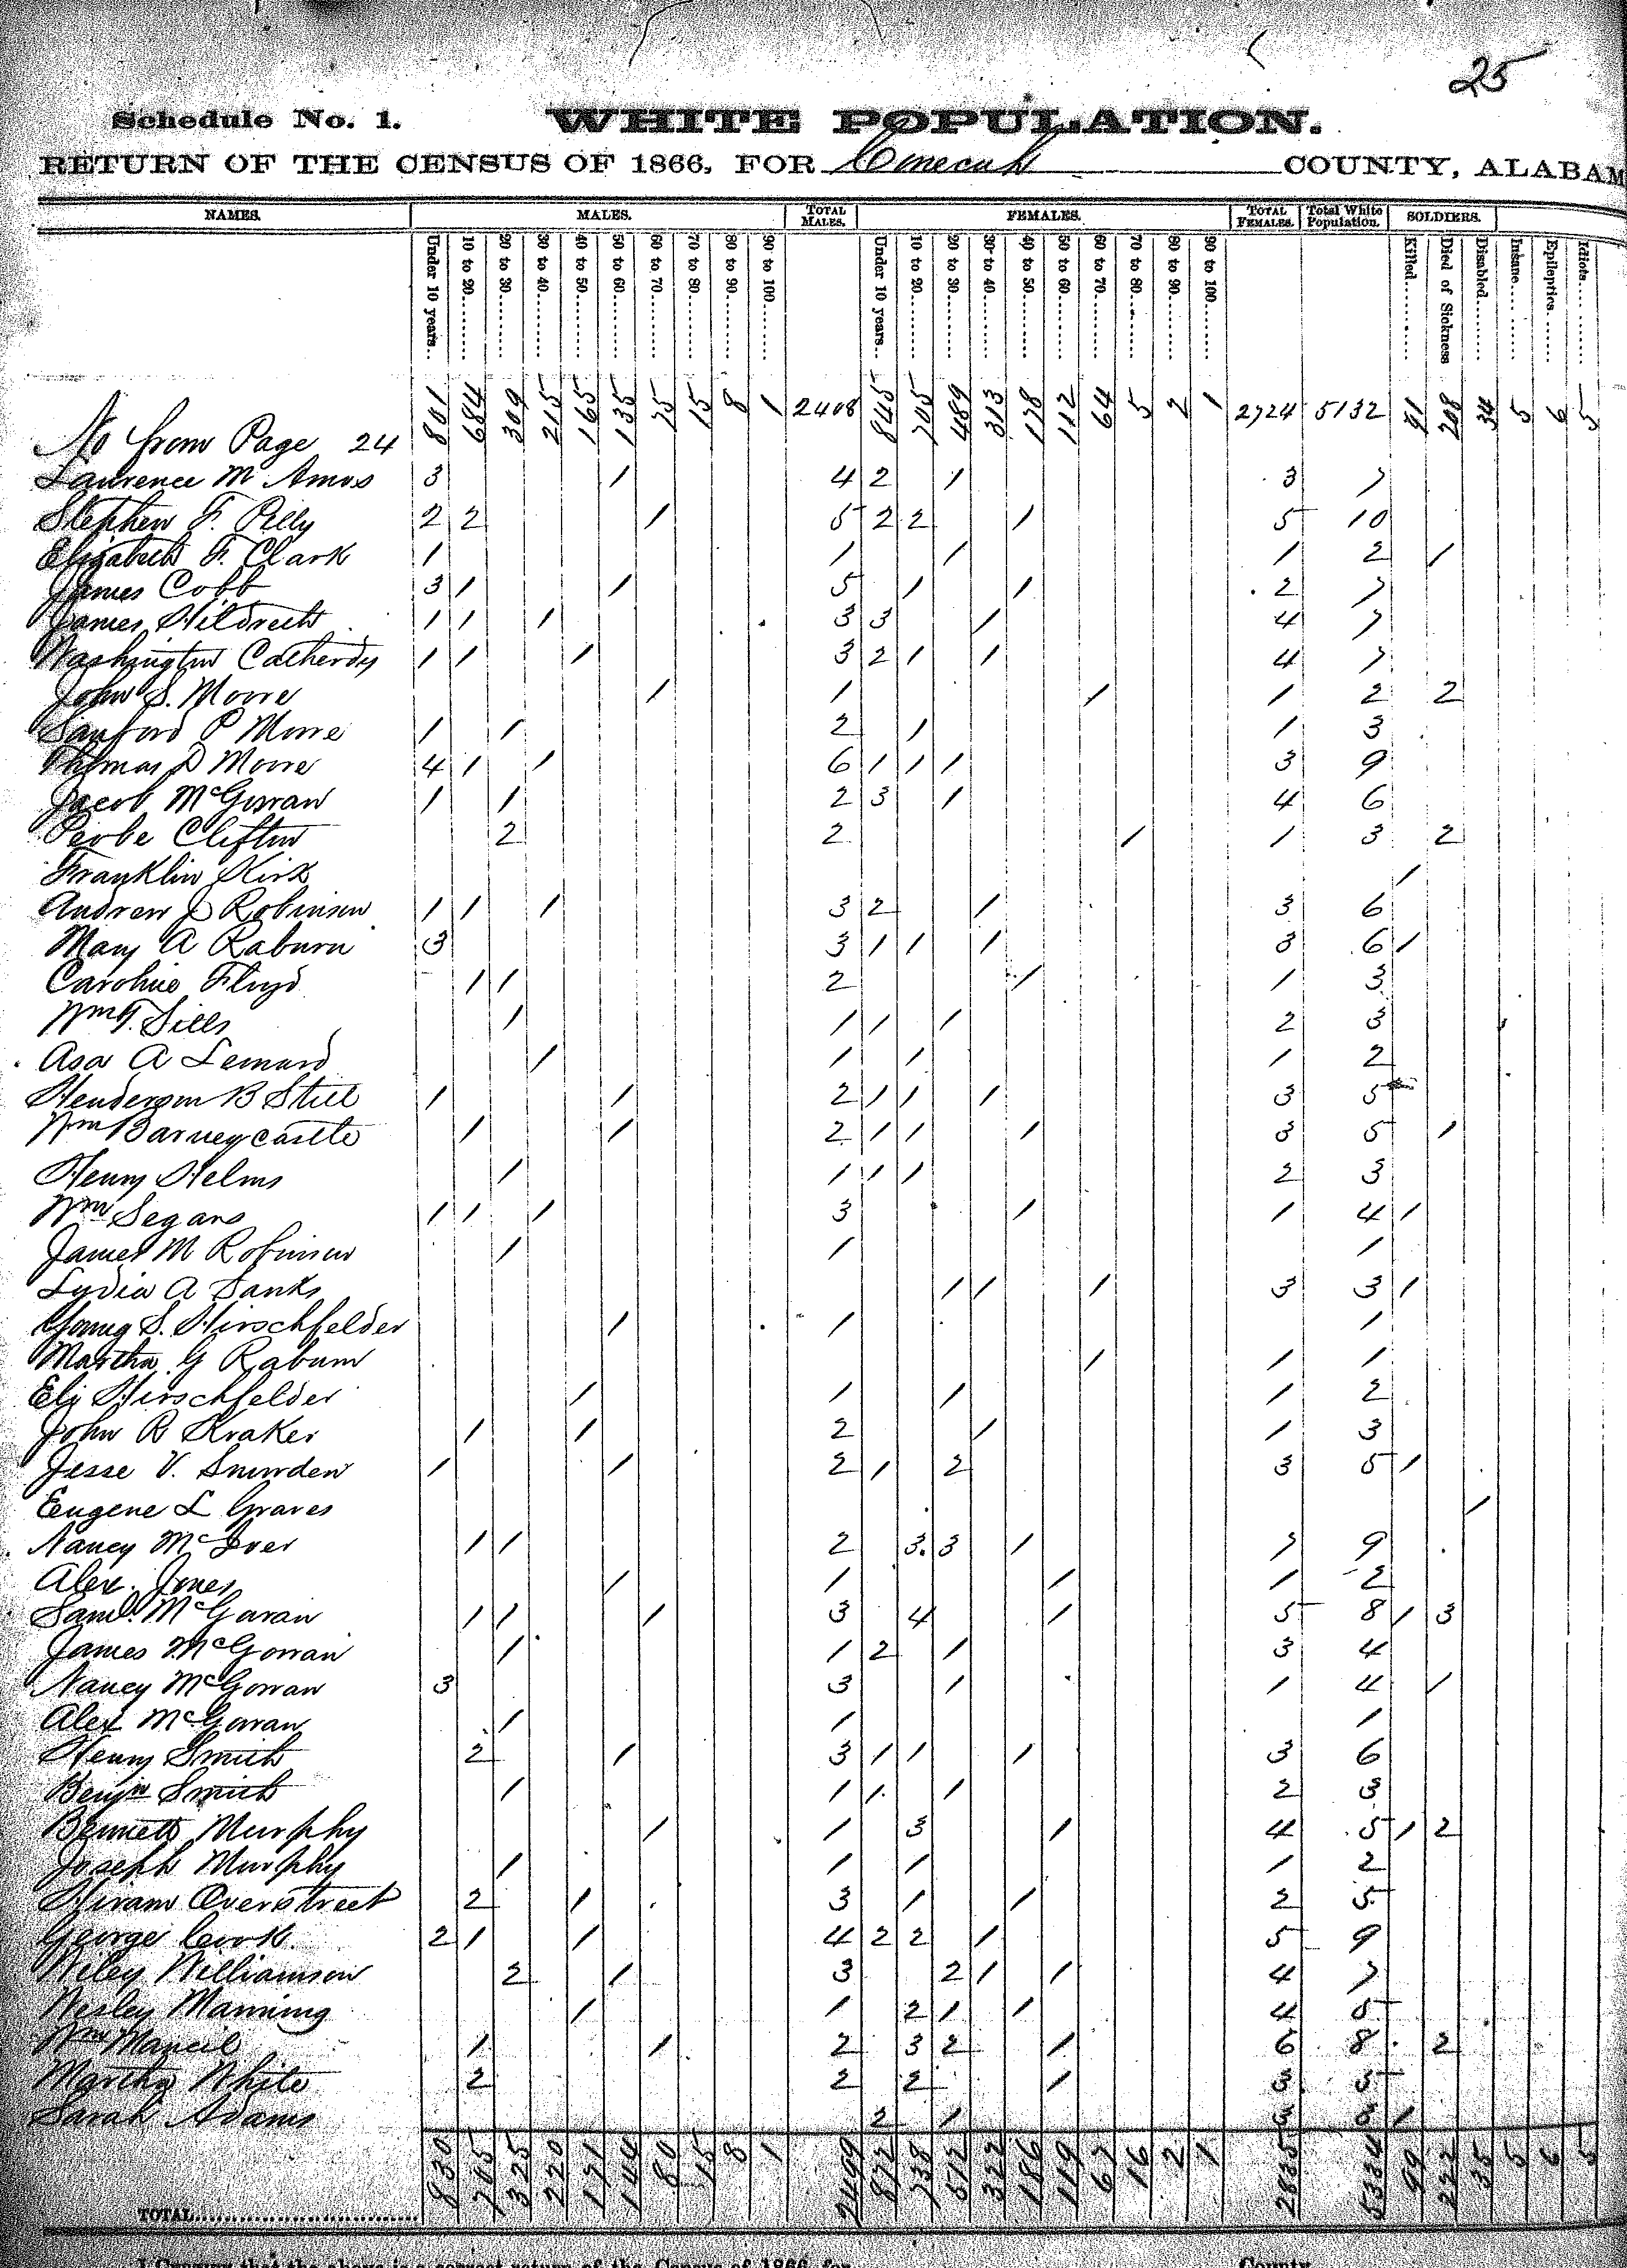 25
Schedule No. 1. WHITE POPULATION.
RETURN OF THE CENSUS OF 1866, FOR Conecuh COUNTY, ALABAM
NAMES. MALES. TOTAL MALES. FEMALES. TOTAL FEMALES. Total White Population. SOLDIERS.
Under 10 years.. 10 to 20 20 to 30 30 to 40 40 to 50 50 to 60 60 to 70 70 to 80 80 to 90 90 to 100 Under 10 years.. 10 to 20 20 to 30 30 to 40 40 to 50 50 to 60 60 to 70 70 to 80 80 to 90 90 to 100 Killed Died of Sickness Disabled Insane Epileptics Idiots
No from Page 24 801 684 309 215 165 135 75 15 8 1 2408 845 705 489 313 178 112 64 5 2 1 2724 5132 91 208 34 5 6 5
Laurence M Amos 3 1 4 2 1 3 7
Stephen F. Pilly 2 2 1 5 2 2 1 5 10
Elizabeth F. Clark 1 1 1 1 2 1
James Cobb 3 1 1 5 1 1 2 7
James Hildreth 1 1 1 3 3 1 4 7
Washington Catherdy 1 1 1 3 2 1 1 4 7
John S. Moore 1 1 1 1 2 2
Sanford P Moore 1 1 2 1 1 3
Thomas D Moore 4 1 1 6 1 1 1 3 9
Jacob McGowan 1 1 2 3 1 4 6
Peobe Clifton 2 2 1 1 3 2
Franklin Kirk 1
Andrew J Robinson 1 1 1 3 2 1 3 6
Mary A Raburn 3 3 1 1 1 3 6 1
Caroline Floyd 1 1 2 1 1 3
Wm T. Sills 1 1 1 1 2 3
Asa A Lemurd 1 1 1 1 2
Henderson B Stiel 1 1 2 1 1 1 3 5
Wm Barneycastle 1 1 2 1 1 1 3 5 1
Henry Helms 1 1 1 1 2 3
Wm Segars 1 1 1 3 1 1 4 1
James M Robinson 1 1 1
Lydia A Sanks 1 1 1 3 3 1
Young S. Hirschfelder 1 1 1
Martha G Raburn 1 1 1
Eli Hirschfelder 1 1 1 1 2
John R Kraker 1 1 2 1 1 3
Jesse V. Snowden 1 1 2 1 2 3 5 1
Eugene L Graves 1
Nancy McIver 1 1 2 3 3 1 7 9
Alex. Jones 1 1 1 1 2
Saml. McGowan 1 1 1 3 4 1 5 8 1 3
James McGowan 1 1 2 1 3 4
Nancy McGowan 3 3 1 1 4 1
Alex McGowan 1 1 1
Henry Smith 2 1 3 1 1 1 3 6
Benjn Smith 1 1 1 1 2 3
Bennett Murphy 1 1 3 1 4 5 1 2
Joseph Murphy 1 1 1 1 2
Hiram Overstreet 2 1 3 1 1 2 5
George Cook 2 1 1 4 2 2 1 5 9
Wiley Williamson 2 1 3 2 1 1 4 7
Wesley Manning 1 1 2 1 1 4 5
Wm Mancil 1 1 2 3 2 1 6 8 2
Martha White 2 2 2 1 3 5
Sarah Adams 2 1 3 3 1
TOTAL 830 705 325 220 171 144 80 15 8 1 2499 872 738 512 322 186 119 67 16 2 1 2835 5334 99 222 35 5 6 5
I Certify that the above is a correct return of the Census of 1866, for County